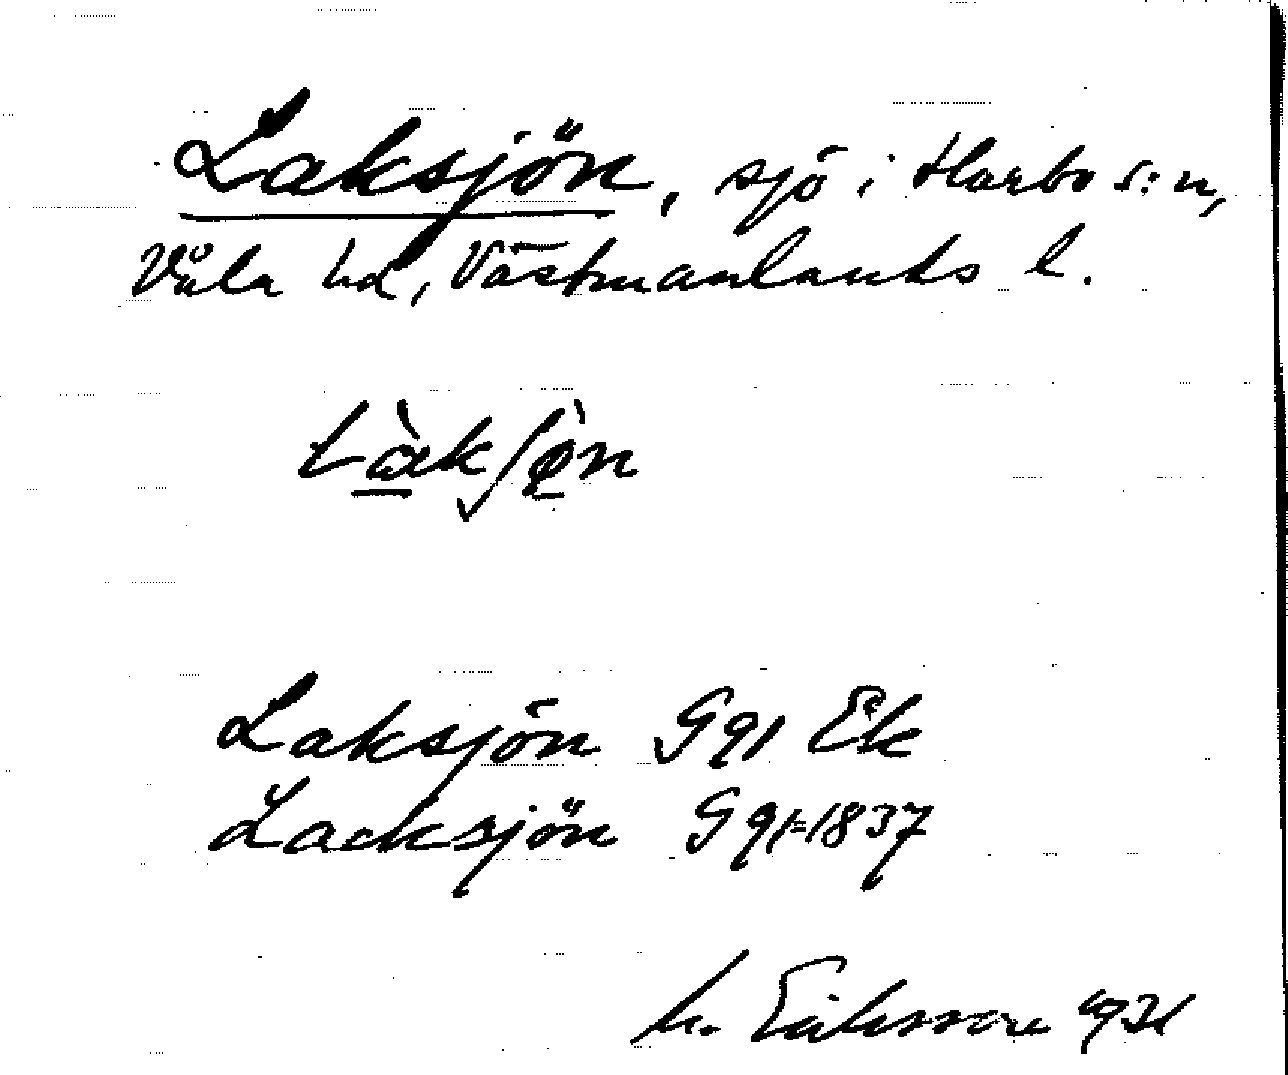 Laksjön, sjö i Harbo s:n,
Våla hd, Västmanlands l.
Laksjön G 91 Ek
Lacksjön G 91=1837
M. Eriksson 1931